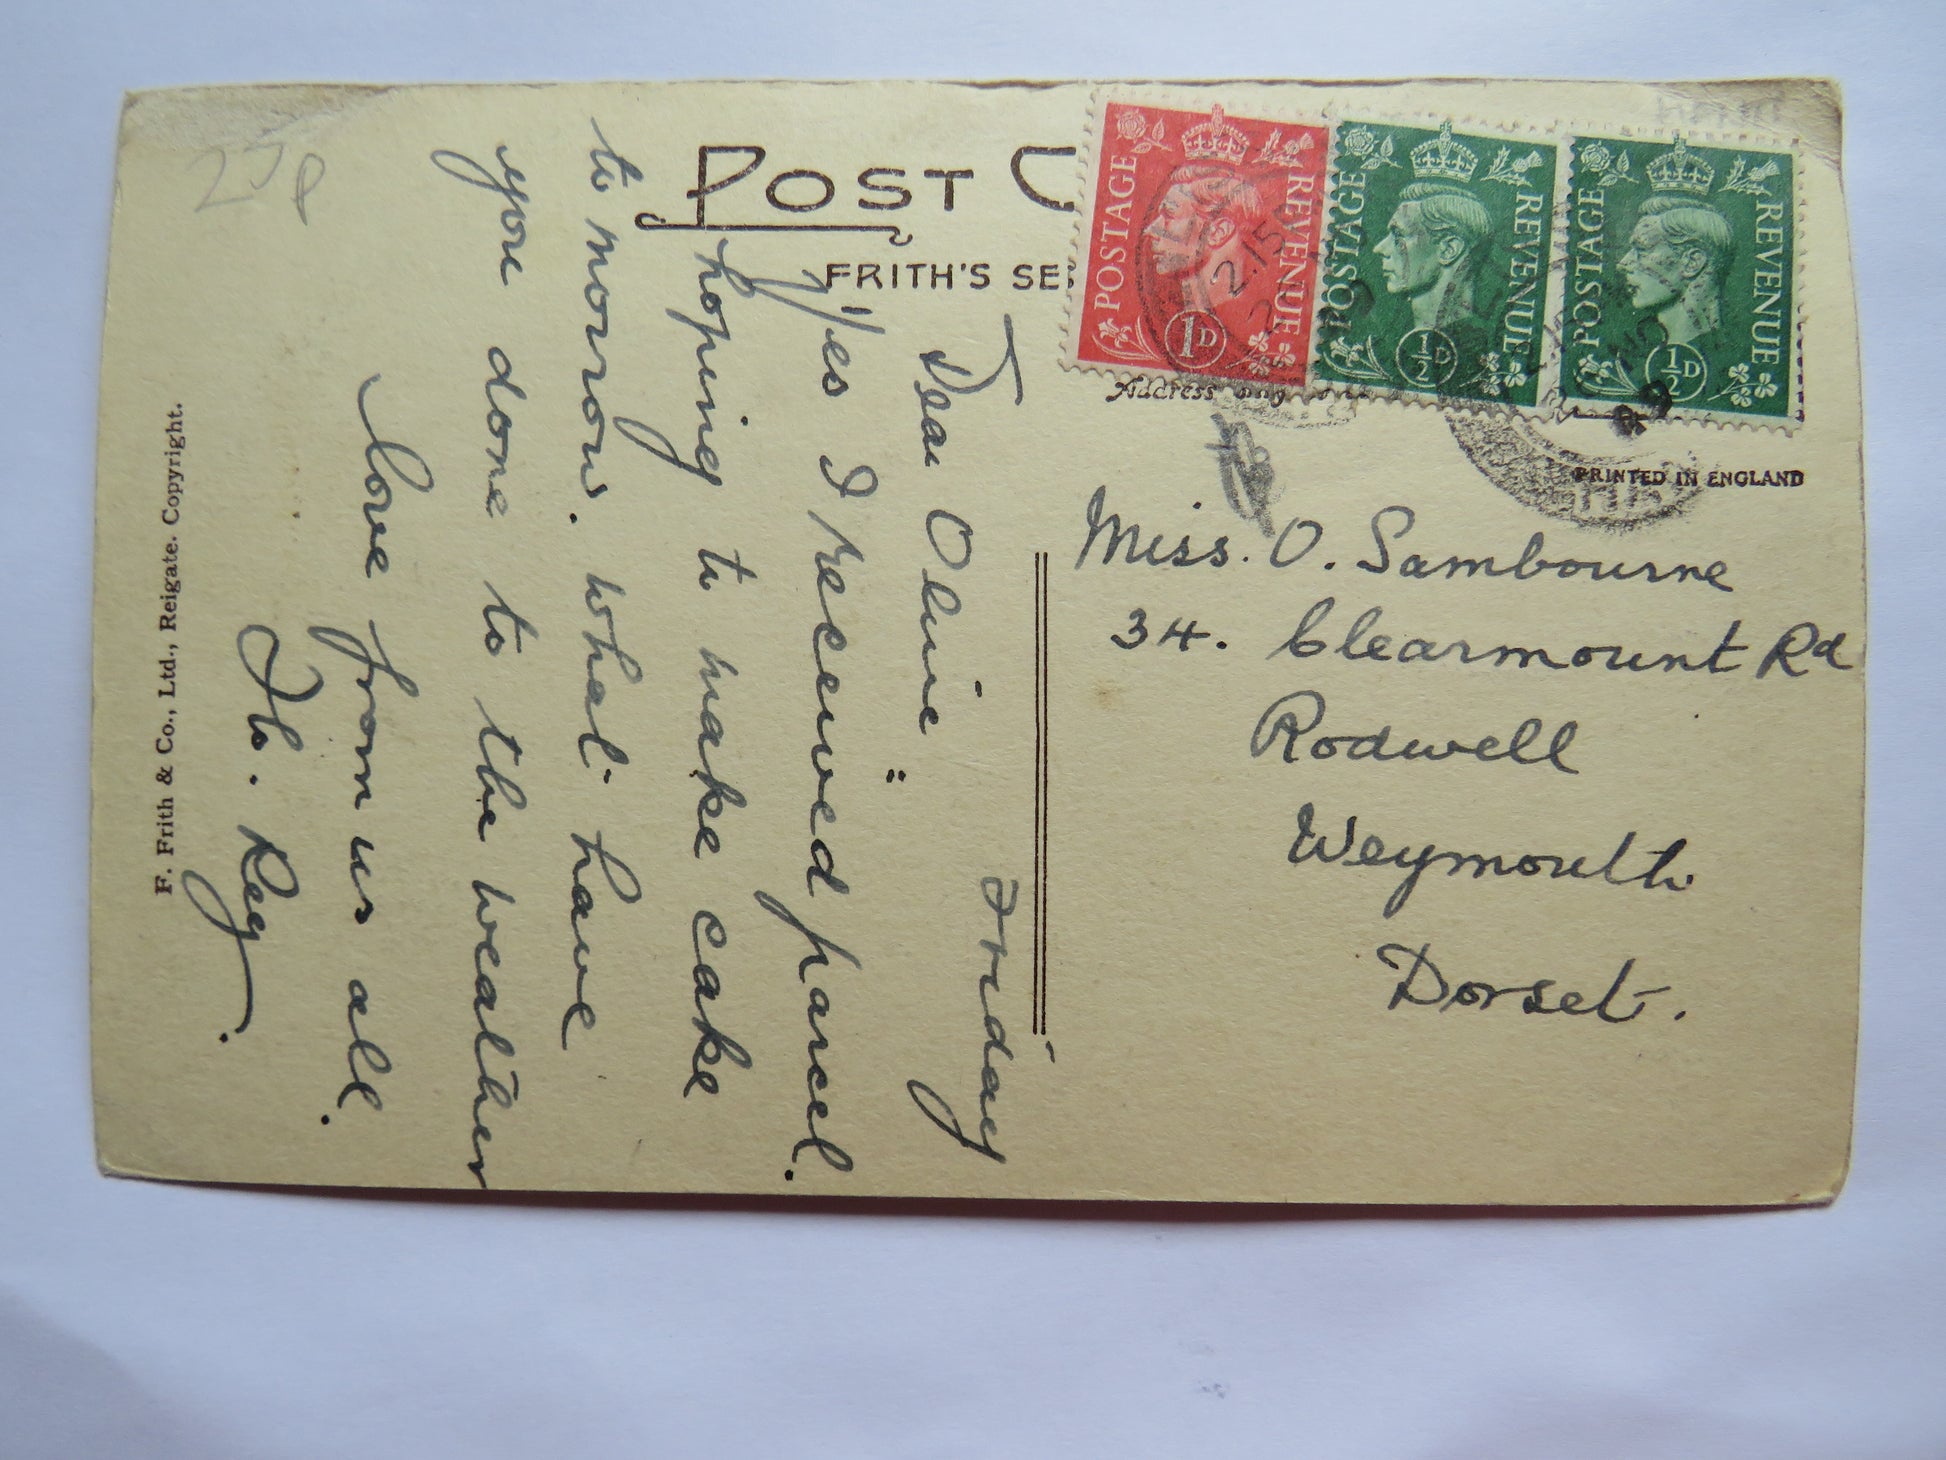 POST
FRITH'S SE
Address only
PRINTED IN ENGLAND
POSTAGE REVENUE
1D
POSTAGE REVENUE
½D
POSTAGE REVENUE
½D
2.15
Miss. O. Sambourne
34. Clearmount Rd
Rodwell
Weymouth
Dorset.
Friday
Dear Olive "
Yes I received parcel.
hoping to make cake
to morrow. what have
you done to the weather
love from us all.
Reg.
F. Frith & Co., Ltd., Reigate. Copyright.